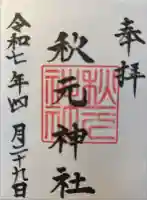 奉拝
秋元神社
令和七年四月二十九日